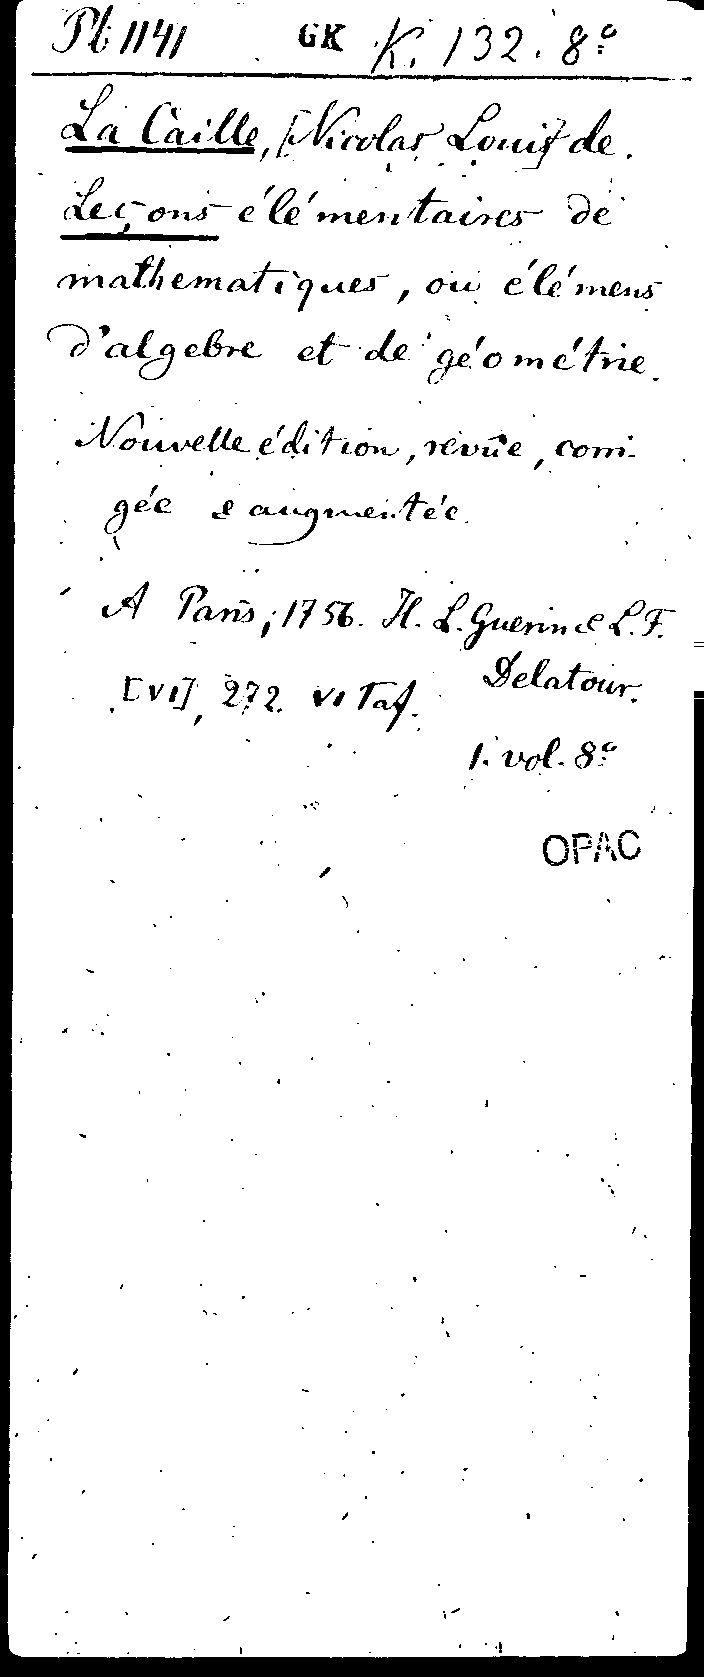 Pb 1141 GK K. 132. 8º
La Caille, [Nicolas Louis] de.
Leçons élémentaires de
mathematiques, ou élémens
d'algebre et de géométrie.
Nouvelle édition, revûe, corri-
gée & augmentée.
A Paris, 1756. H. L. Guerin & L. F.
Delatour.
[VI], 272. VI Taf.
1. vol. 8º
OPAC